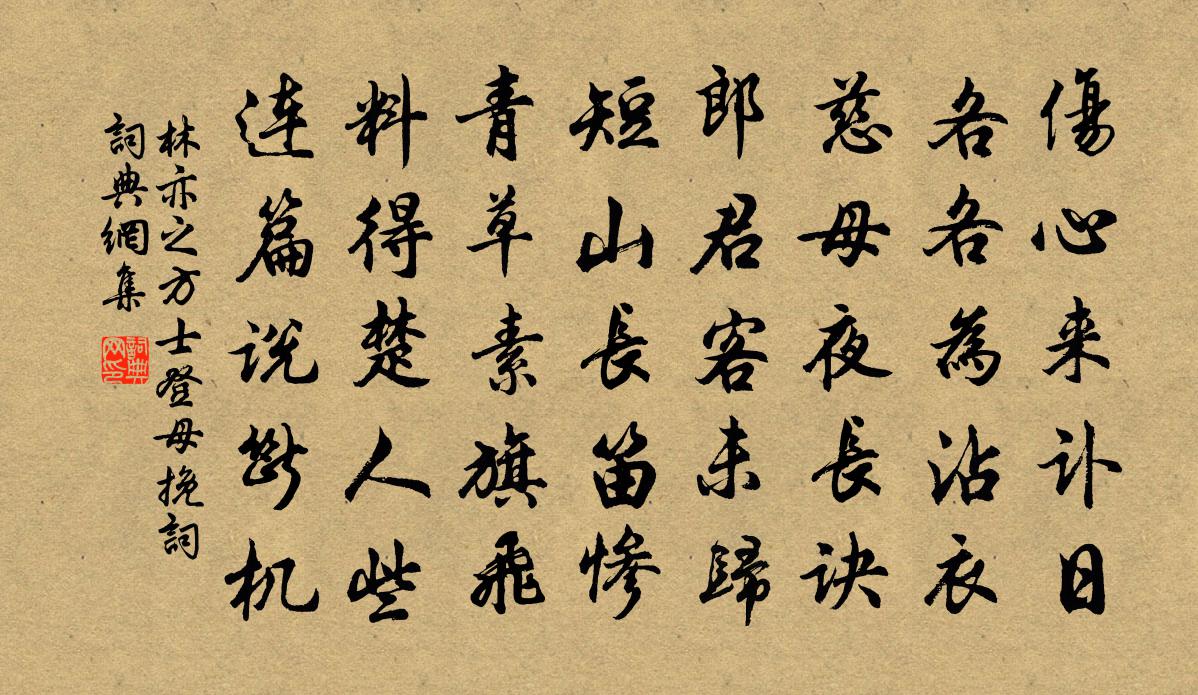 傷心来訃日
各各為沾衣
慈母夜長訣
郎君客未歸
短山長笛慘
青草素旗飛
料得楚人些
连篇説斷机
林亦之方士登母挽詞
詞典網集
詞典网印